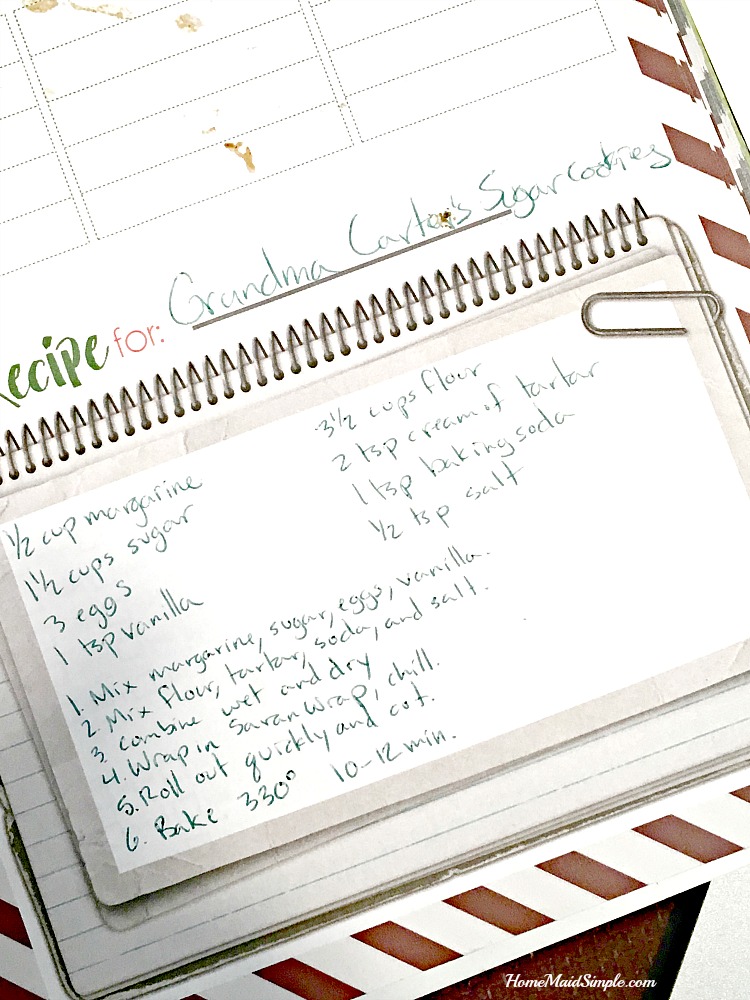 Recipe for: Grandma Carter's Sugar cookies
1/2 cup margarine
1 1/2 cups sugar
3 eggs
1 tsp vanilla
3 1/2 cups flour
2 tsp cream of tartar
1 tsp baking soda
1/2 tsp salt
1. Mix margarine, sugar, eggs, vanilla.
2. Mix flour, tartar, soda, and salt.
3. Combine wet and dry
4. Wrap in Saran Wrap, chill.
5. Roll out quickly and cut.
6. Bake 330° 10-12 min.
HomeMaidSimple.com